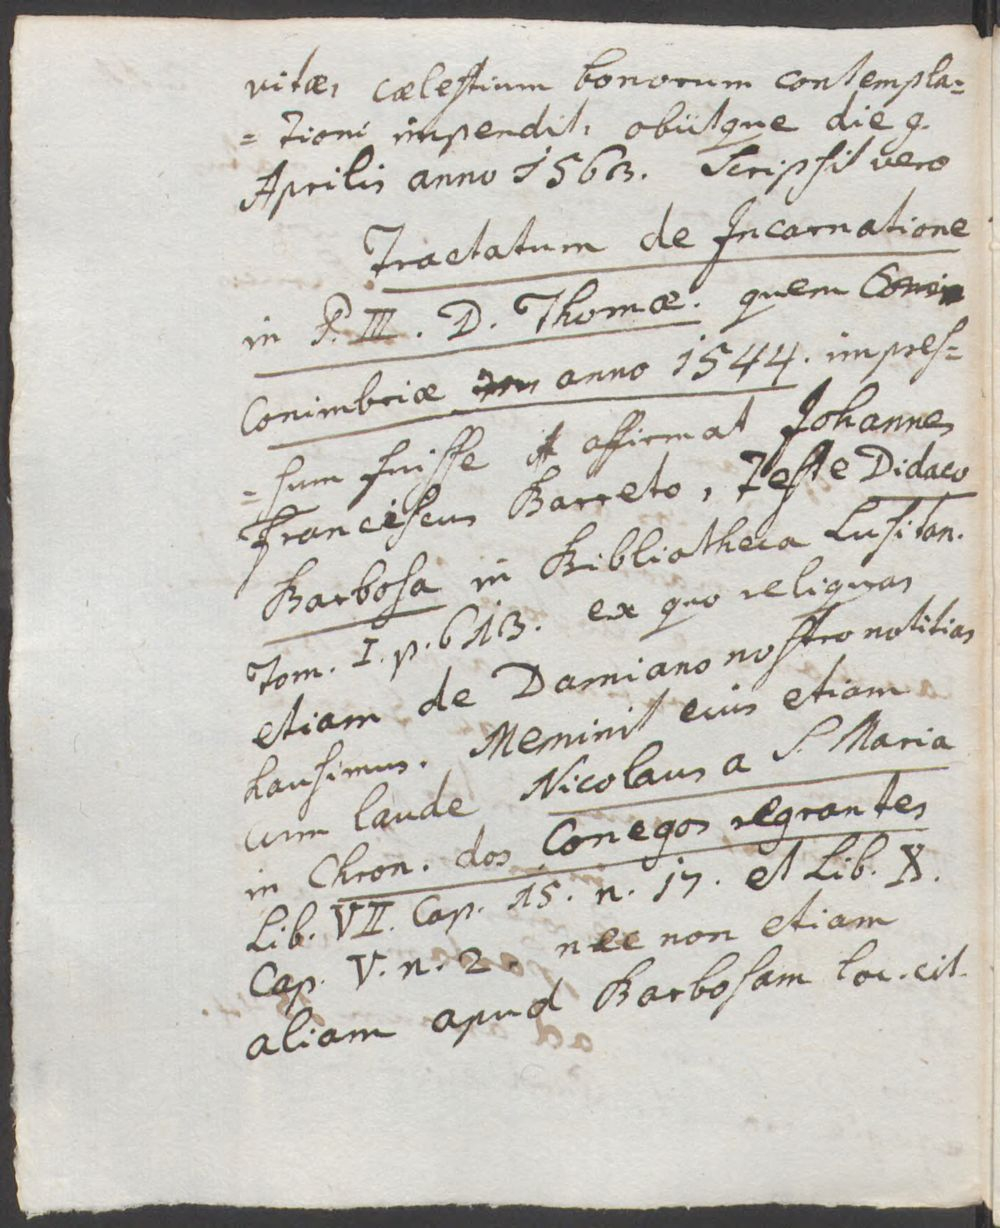 vitæ, cælestium bonorum contempla=
=tioni impendit, obiitque die 9.
Aprilis anno 1563. Scripsit vero
Tractatum de Incarnatione
in P. III. D. Thomæ. quem
Conimbriæ anno 1544. impres=
=sum fuisse affirmat Johannes
Franciscus Barreto, teste Didaco
Barbosa in Bibliotheca Lusitan.
Tom. I. p. 613. ex quo reliquas
etiam de Damiano nostro notitias
hausimus. Meminit eius etiam
cum laude Nicolaus a S. Maria
in Chron. dos Conegos regrantes
Lib. VII. Cap. 15. n. 17. et Lib. X.
Cap. V. n. 2. nec non etiam
aliam apud Barbosam loc. cit.